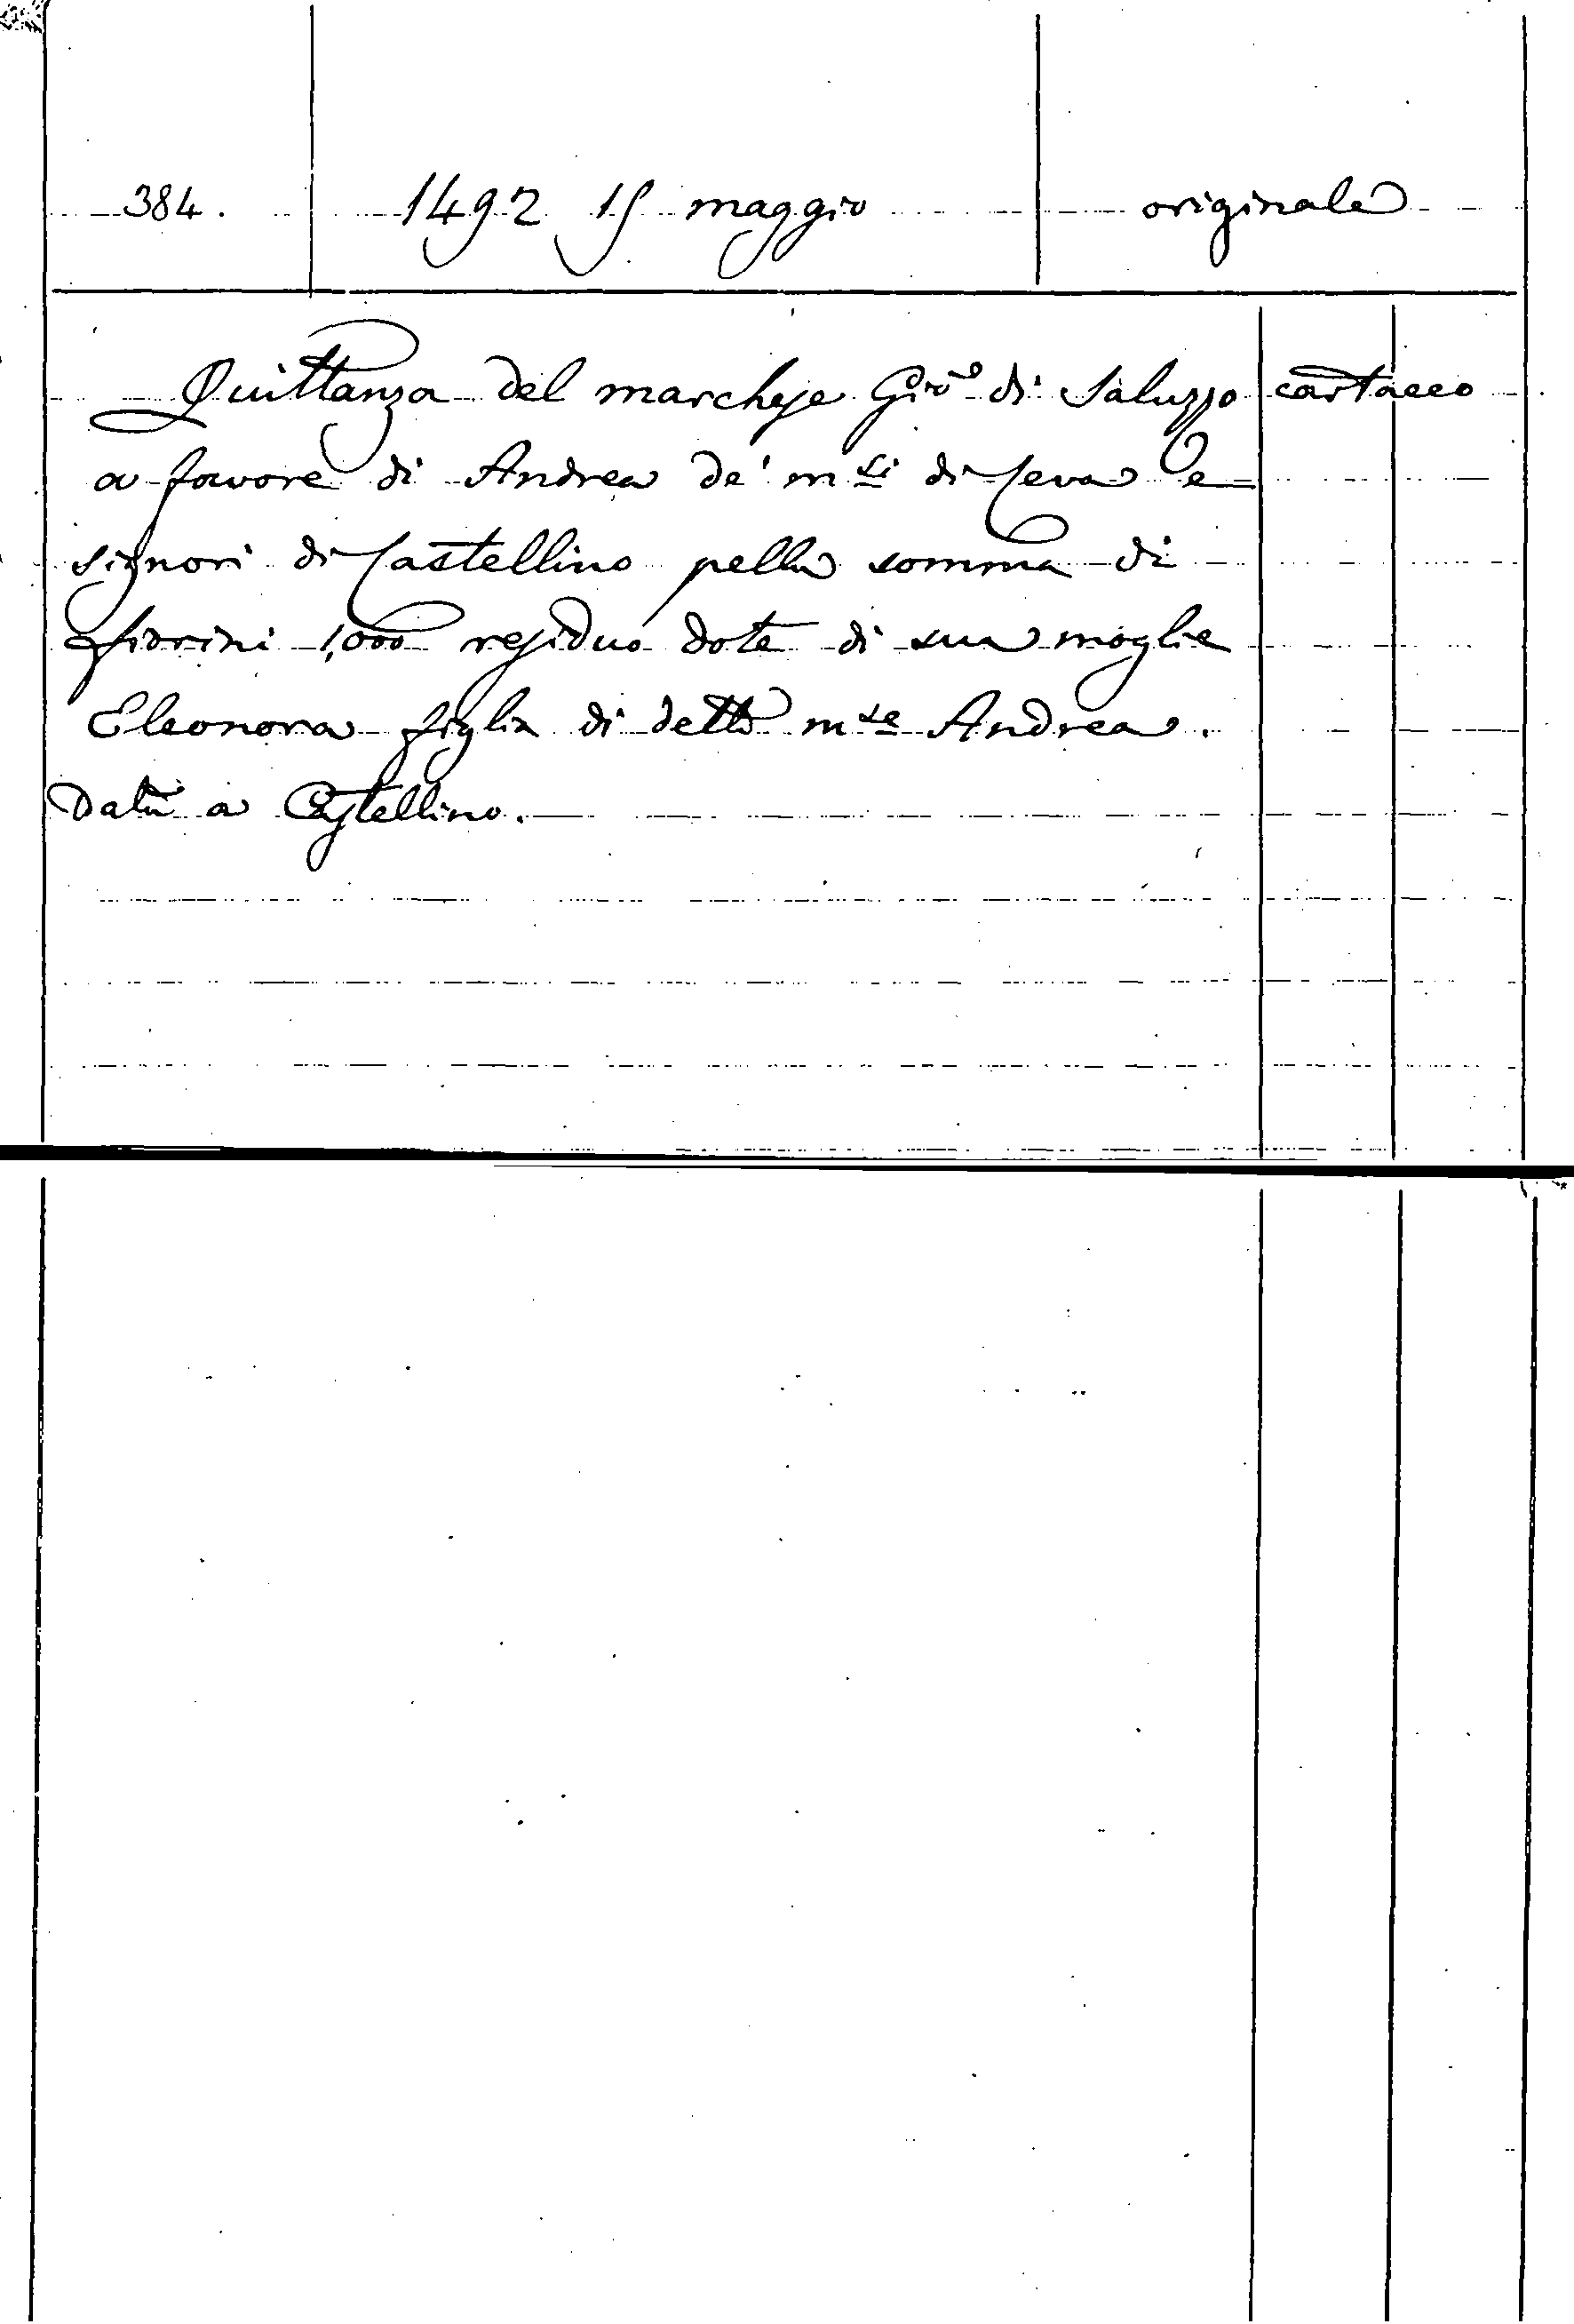 384. 1492 15 maggio originale
Quittanza del marchese Gio° di Saluzzo cartaceo
a favore di Andrea de' m.si di Ceva e
signori di Castellino pella somma di
fiorini 1,000 residuo dote di sua moglie
Eleonora figlia di detto m.se Andrea.
Dat. a Castellino.